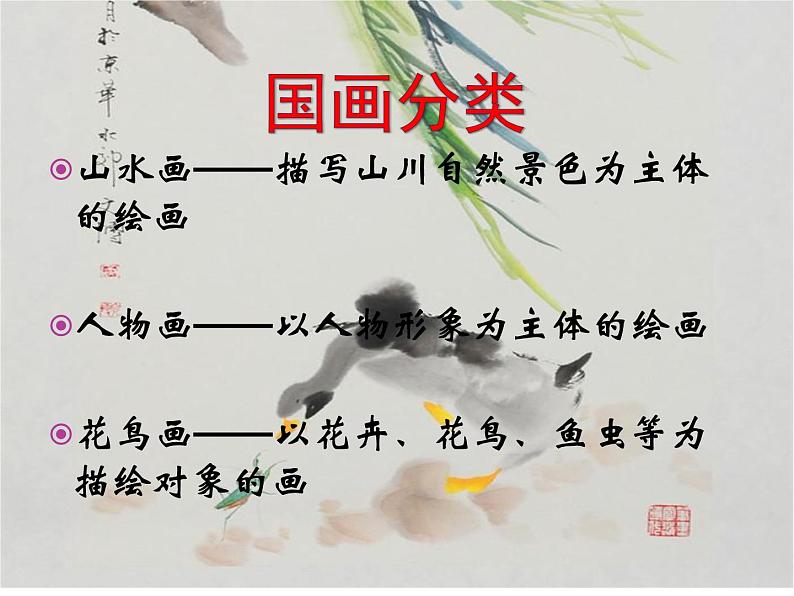 国画分类
山水画——描写山川自然景色为主体
的绘画
人物画——以人物形象为主体的绘画
花鸟画——以花卉、花鸟、鱼虫等为
描绘对象的画
月於京華水郊